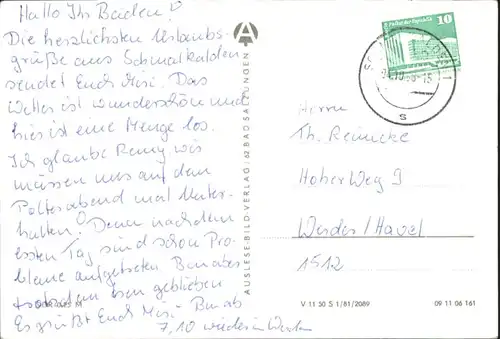 Hallo Ihr Beiden!
Die herzlichsten Urlaubs-
grüße aus Schmalkalden
sendet Euch Das
Wetter ist wunderschön und
hier ist eine Menge los.
Ich glaube Remy wir
müssen uns auf dem
Polterabend mal Unter-
halten! Denn nach dem
ersten Tag sind schon Pro-
bleme aufgetreten.
trotzdem geblieben
Es grüßt Euch
7,10 wieder in
AUSLESE-BILD-VERLAG / 62 BAD SALZUNGEN
10
s
Herrn
Th. Reinicke
Hoher Weg 9
Werder/Havel
1512
V 11 50 S 1/81/2089
09 11 06 161